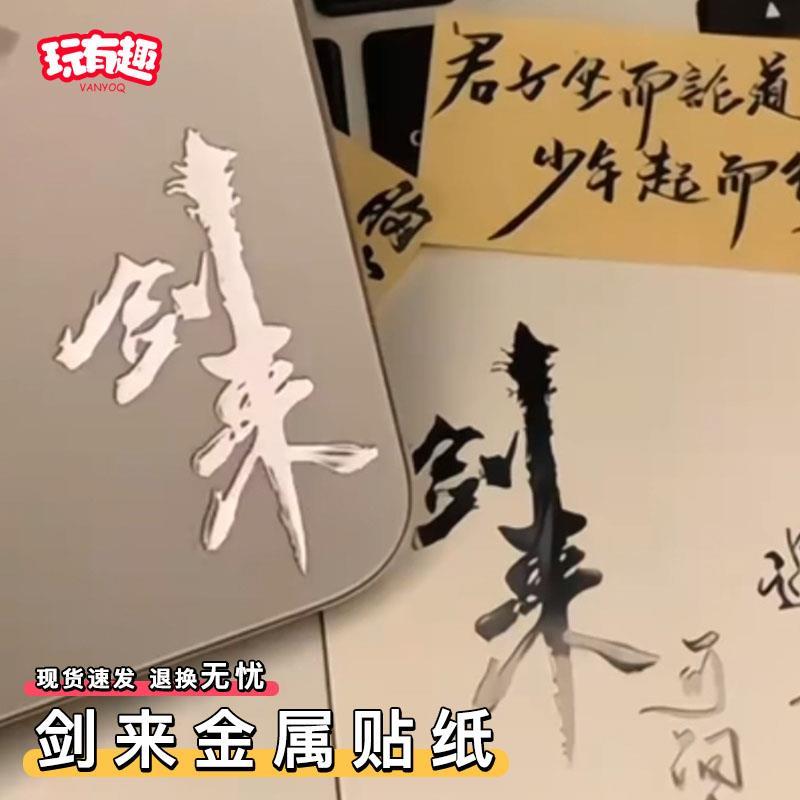 玩有趣
VANYOQ
君子坐而論道
少年起而
剑来
剑来
现货速发 退换无忧
剑来金属贴纸